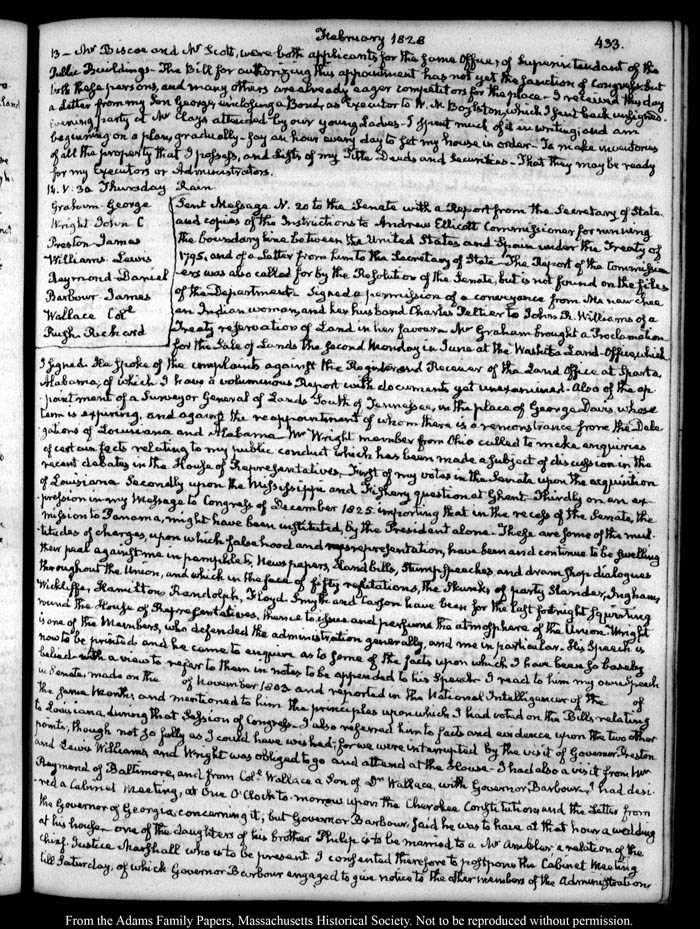 February 1828
433.
13 - Mr Biscoe and Mr Scott, were both applicants for the same Office, of Superintendant of the
Public Buildings - The Bill for authorizing this appointment has not yet the sanction of Congress, but
both these persons, and many others are already eager competitors for the place - I received this day
a Letter from my Son George, enclosing a Bond, as Executor to W. N. Boylston, which I sent back unsigned.
Evening party at Mr Clay's attended by our young Ladies - I spent much of it in writing; and am
beginning on a plan, gradually - say an hour every day to set my house in order - To make inventories
of all the property that I possess, and Lists of my Title Deeds and Securities - That they may be ready
for my Executors or Administrators.
14. V: 30 Thursday Rain
Graham George
Wright John C
Preston James
Williams Lewis
Raymond Daniel
Barbour James
Wallace Col
Rush Richard
Sent Message N. 20 to the Senate with a Report from the Secretary of State
and copies of the Instructions to Andrew Ellicott Commissioner for running
the boundary line between the United States and Spain under the Treaty of
1795, and of a Letter from him to the Secretary of State - The Report of the Commission-
ers was also called for by the Resolution of the Senate, but is not found on the files
of the Department - Signed a permission of a conveyance from Me naw chee
an Indian woman, and her husband Charles Peltier to John R. Williams of a
Treaty reservation of Land in her favour - Mr Graham brought a Proclamation
for the Sale of Lands the second Monday in June at the Washita Land-Office, which
I signed. He spoke of the complaints against the Register and Receiver of the Land Office at Sparta
Alabama; of which I have a voluminous Report with documents yet unexamined - Also of the ap-
pointment of a Surveyor General of Lands South of Tennessee, in the place of George Davis, whose
term is expiring, and against the reappointment of whom there is a remonstrance from the Dele-
gations of Louisiana and Alabama. Mr Wright, member from Ohio called to make enquiries
of certain facts relating to my public conduct which has been made a subject of discussion in the
recent debates in the House of Representatives. First of my votes in the Senate upon the acquisition
of Louisiana Secondly upon the Mississippi and Fishery question at Ghent. Thirdly on an ex-
pression in my Message to Congress of December 1825 importing that in the recess of the Senate, the
mission to Panama, might have been instituted by the President alone. These are some of the mul-
titudes of charges, upon which falsehood and misrepresentation, have been and continue to be swelling
their peal against me in pamphlets, Newspapers, Handbills, Stump Speeches and dram shop dialogues
throughout the Union, and which in the face of fifty refutations, the Skunks of party Slander, Ingham,
Wickliffe, Hamilton, Randolph, Floyd, Smyth and Carson have been for the last fortnight squirting
round the House of Representatives, thence to issue and perfume the atmosphere of the Union. Wright
is one of the Members, who defended the administration generally, and me in particular. His Speech is
now to be printed and he came to enquire as to some of the facts upon which I have been so basely
belied with a view to refer to them in notes to be appended to his Speech. I read to him my own Speech
in Senate, made on the of November 1803 and reported in the National Intelligencer of the of
the same Month, and mentioned to him the principles upon which I had voted on the Bills, relating
to Louisiana, during that Session of Congress. I also referred him to facts and evidence upon the two other
points, though not so fully as I could have wished; for we were interrupted by the visit of Governor Preston
and Lewis Williams, and Wright was obliged to go and attend at the House - I had also a visit from Mr
Raymond of Baltimore, and from Col. Wallace a Son of Dr Wallace, with Governor Barbour. I had desi-
red a Cabinet Meeting, at One O'Clock to-morrow upon the Cherokee Constitution, and the Letter from
the Governor of Georgia, concerning it; but Governor Barbour said he was to have at that hour a wedding
at his house - one of the daughters of his brother Philip is to be married to a Mr Ambler a relation of the
Chief Justice Marshall who is to be present. I consented therefore to postpone the Cabinet Meeting
till Saturday, of which Governor Barbour engaged to give notice to the other members of the Administration.
From the Adams Family Papers, Massachusetts Historical Society. Not to be reproduced without permission.